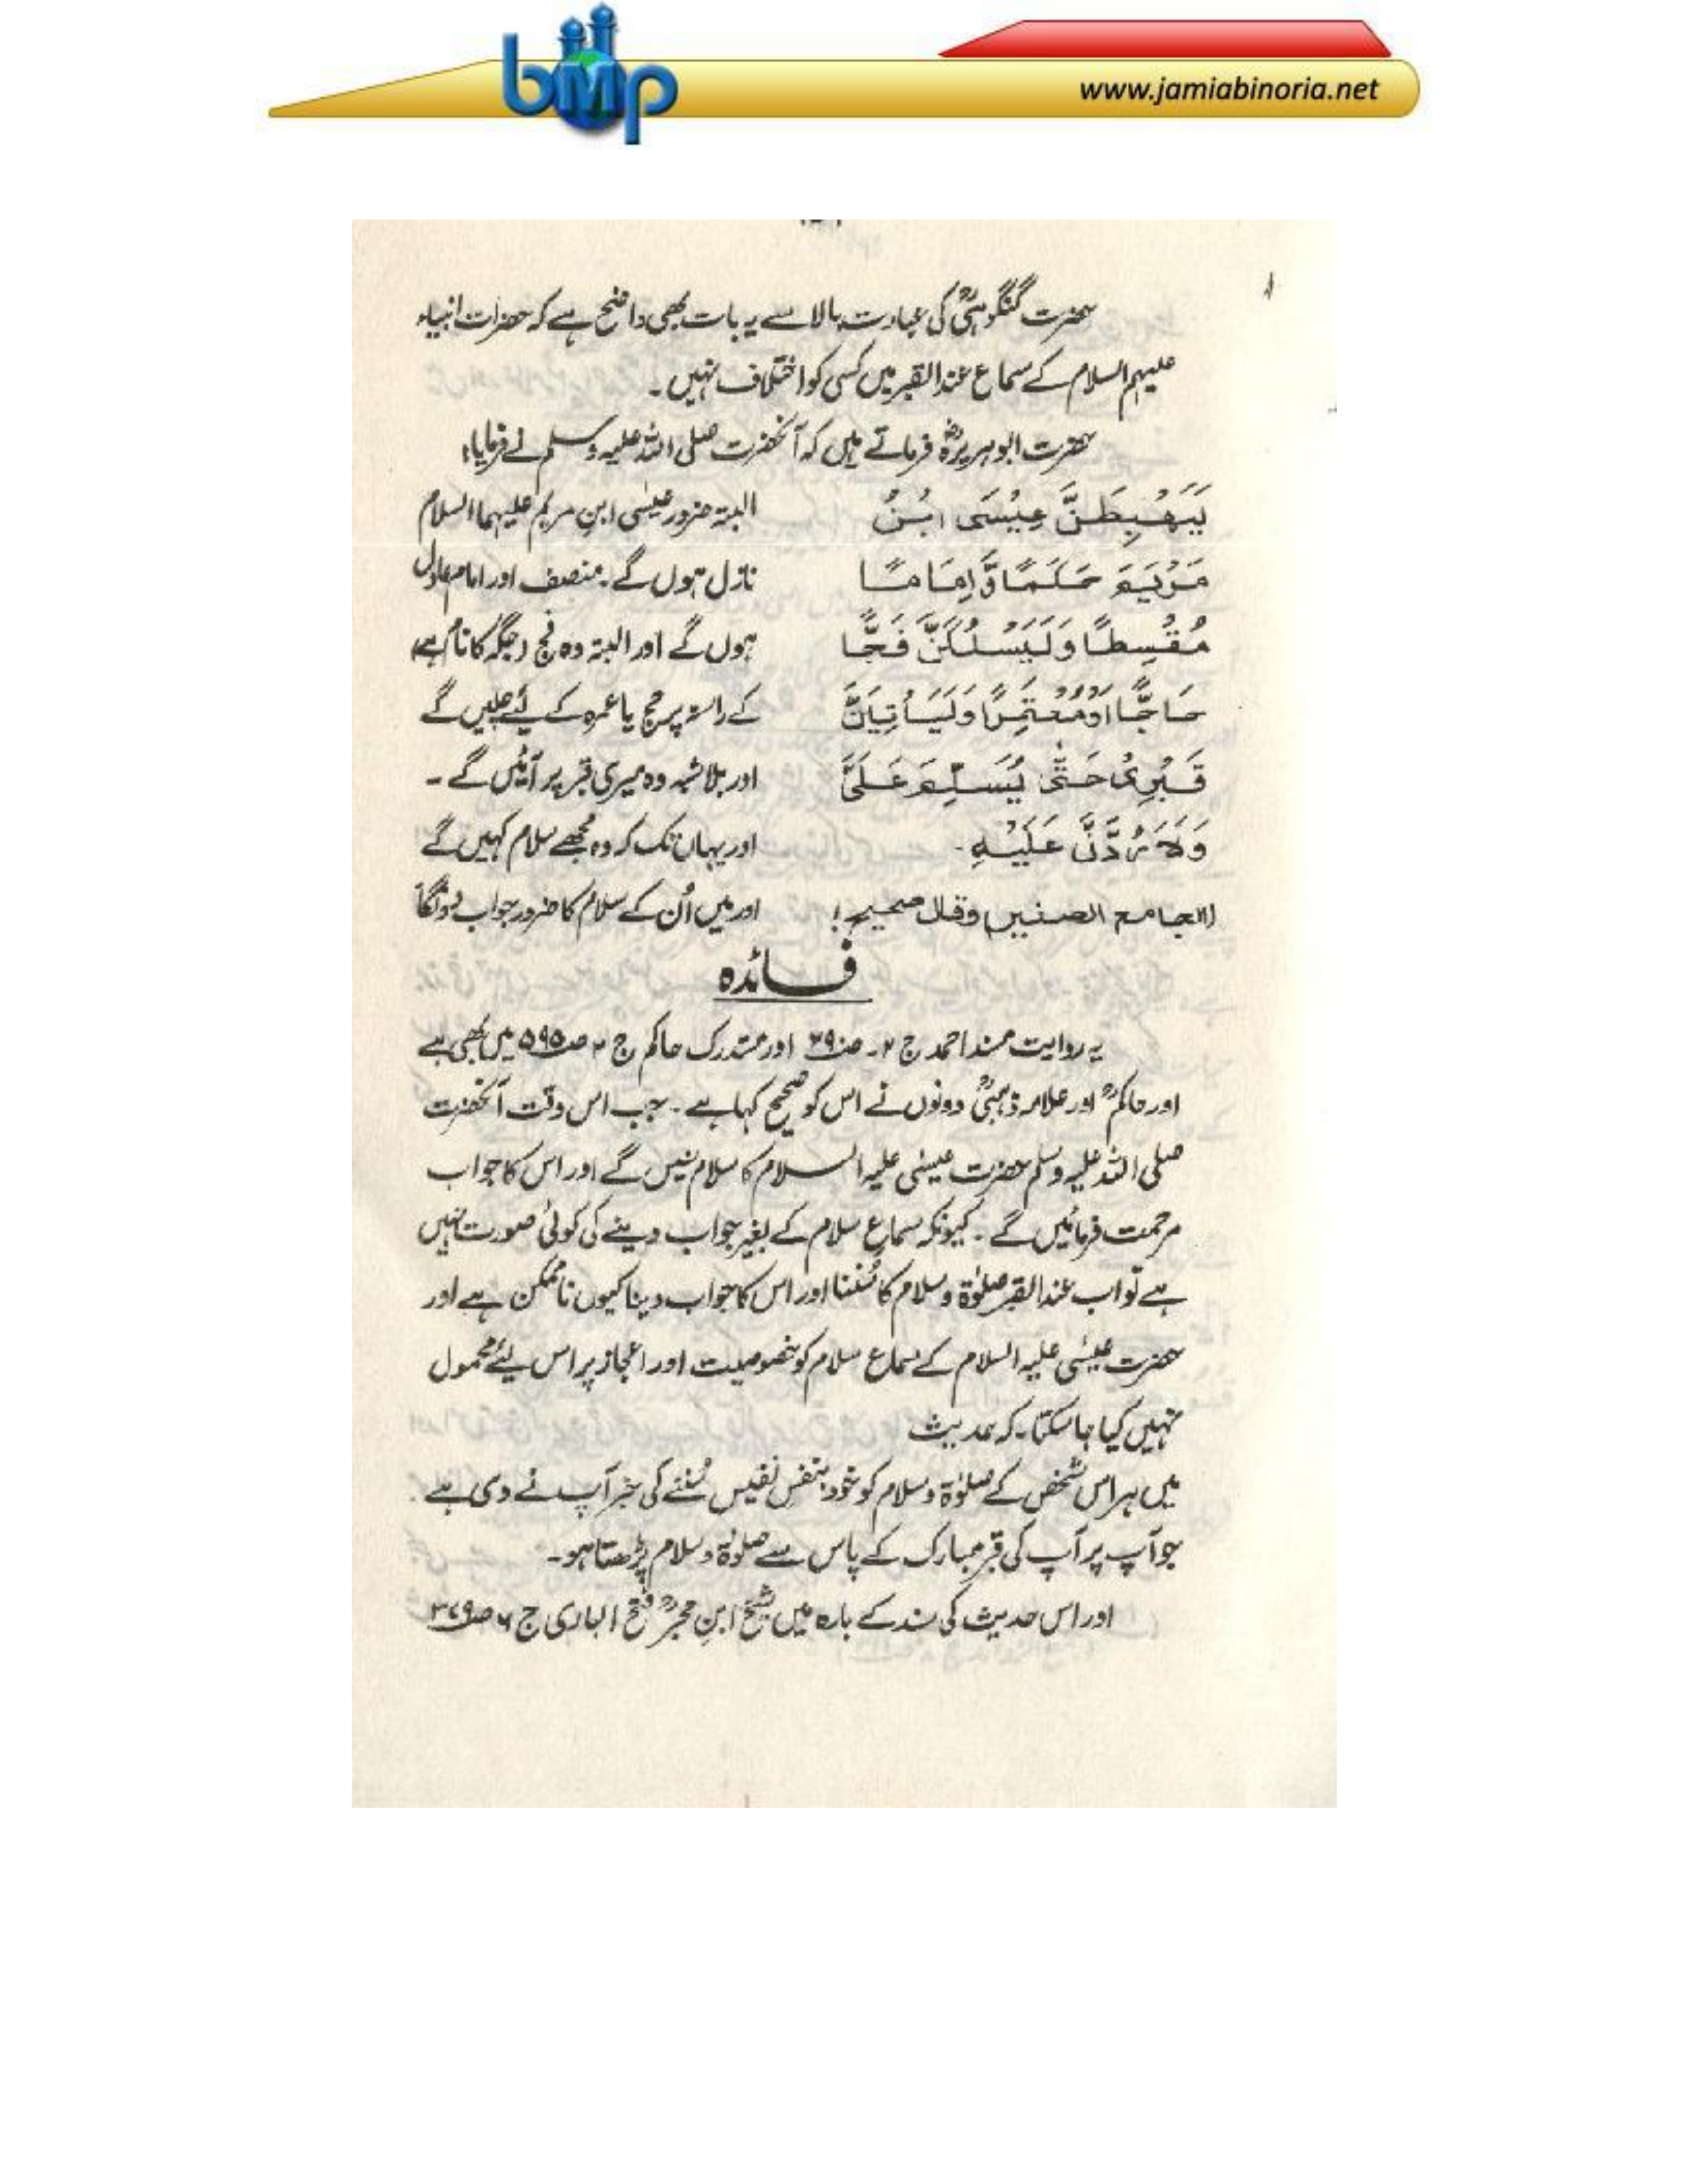 bmp
www.jamiabinoria.net
حضرت گنگوہیؒ کی عبارت بالا سے یہ بات بھی واضح ہے کہ حضرات انبیاء
علیہم السلام کے سماع عند القبر میں کسی کو اختلاف نہیں ۔
حضرت ابو ہریرہؓ فرماتے ہیں کہ آنحضرت صلی اللہ علیہ وسلم نے فرمایا:
لَيَهْبِطَنَّ عِيْسَى ابْنُ
مَرْيَمَ حَكَمًا وَّاِمَامًا
مُقْسِطًا وَلَيَسْلُكَنَّ فَجًّا
حَاجًّا اَوْمُعْتَمِرًا وَلَيَأْتِيَنَّ
قَبْرِىْ حَتّٰى يُسَلِّمَ عَلَىَّ
وَلَاَرُدَّنَّ عَلَيْهِ ۔
(الجامع الصغیر وقال صحیح)
البتہ ضرور عیسٰی ابنِ مریم علیہما السلام
نازل ہوں گے۔ منصف اور امام عادل
ہوں گے اور البتہ وہ فج (جگہ کا نام ہے)
کے راستہ پر حج یا عمرہ کے لیئے چلیں گے
اور بلاشبہ وہ میری قبر پر آئیں گے ۔
اور یہاں تک کہ وہ مجھے سلام کہیں گے
اور میں اُن کے سلام کا ضرور جواب دونگا
فائدہ
یہ روایت مسند احمد ج ۲۔ صـ ۲۹۰ اور مستدرک حاکم ج ۲ صـ ۵۹۵ میں بھی ہے
اور حاکمؒ اور علامہ ذہبیؒ دونوں نے اس کو صحیح کہا ہے ۔ جب اس وقت آنحضرت
صلی اللہ علیہ وسلم حضرت عیسٰی علیہ السلام کا سلام سنیں گے اور اس کا جواب
مرحمت فرمائیں گے ۔ کیونکہ سماع سلام کے بغیر جواب دینے کی کوئی صورت نہیں
ہے تو اب عند القبر صلوٰۃ و سلام کا سُننا اور اس کا جواب دینا کیوں ناممکن ہے اور
حضرت عیسٰی علیہ السلام کے سماع سلام کو خصوصیت اور اعجاز پر اس لیئے محمول
نہیں کیا جا سکتا۔ کہ حدیث
میں ہر اس شخص کے صلوٰۃ و سلام کو خود بنفسِ نفیس سُننے کی خبر آپ نے دی ہے
جو آپ پر آپ کی قبر مبارک کے پاس سے صلوٰۃ و سلام پڑھتا ہو۔
اور اس حدیث کی سند کے بارہ میں شیخ ابنِ حجرؒ فتح الباری ج ۶ صـ ۳۷۹